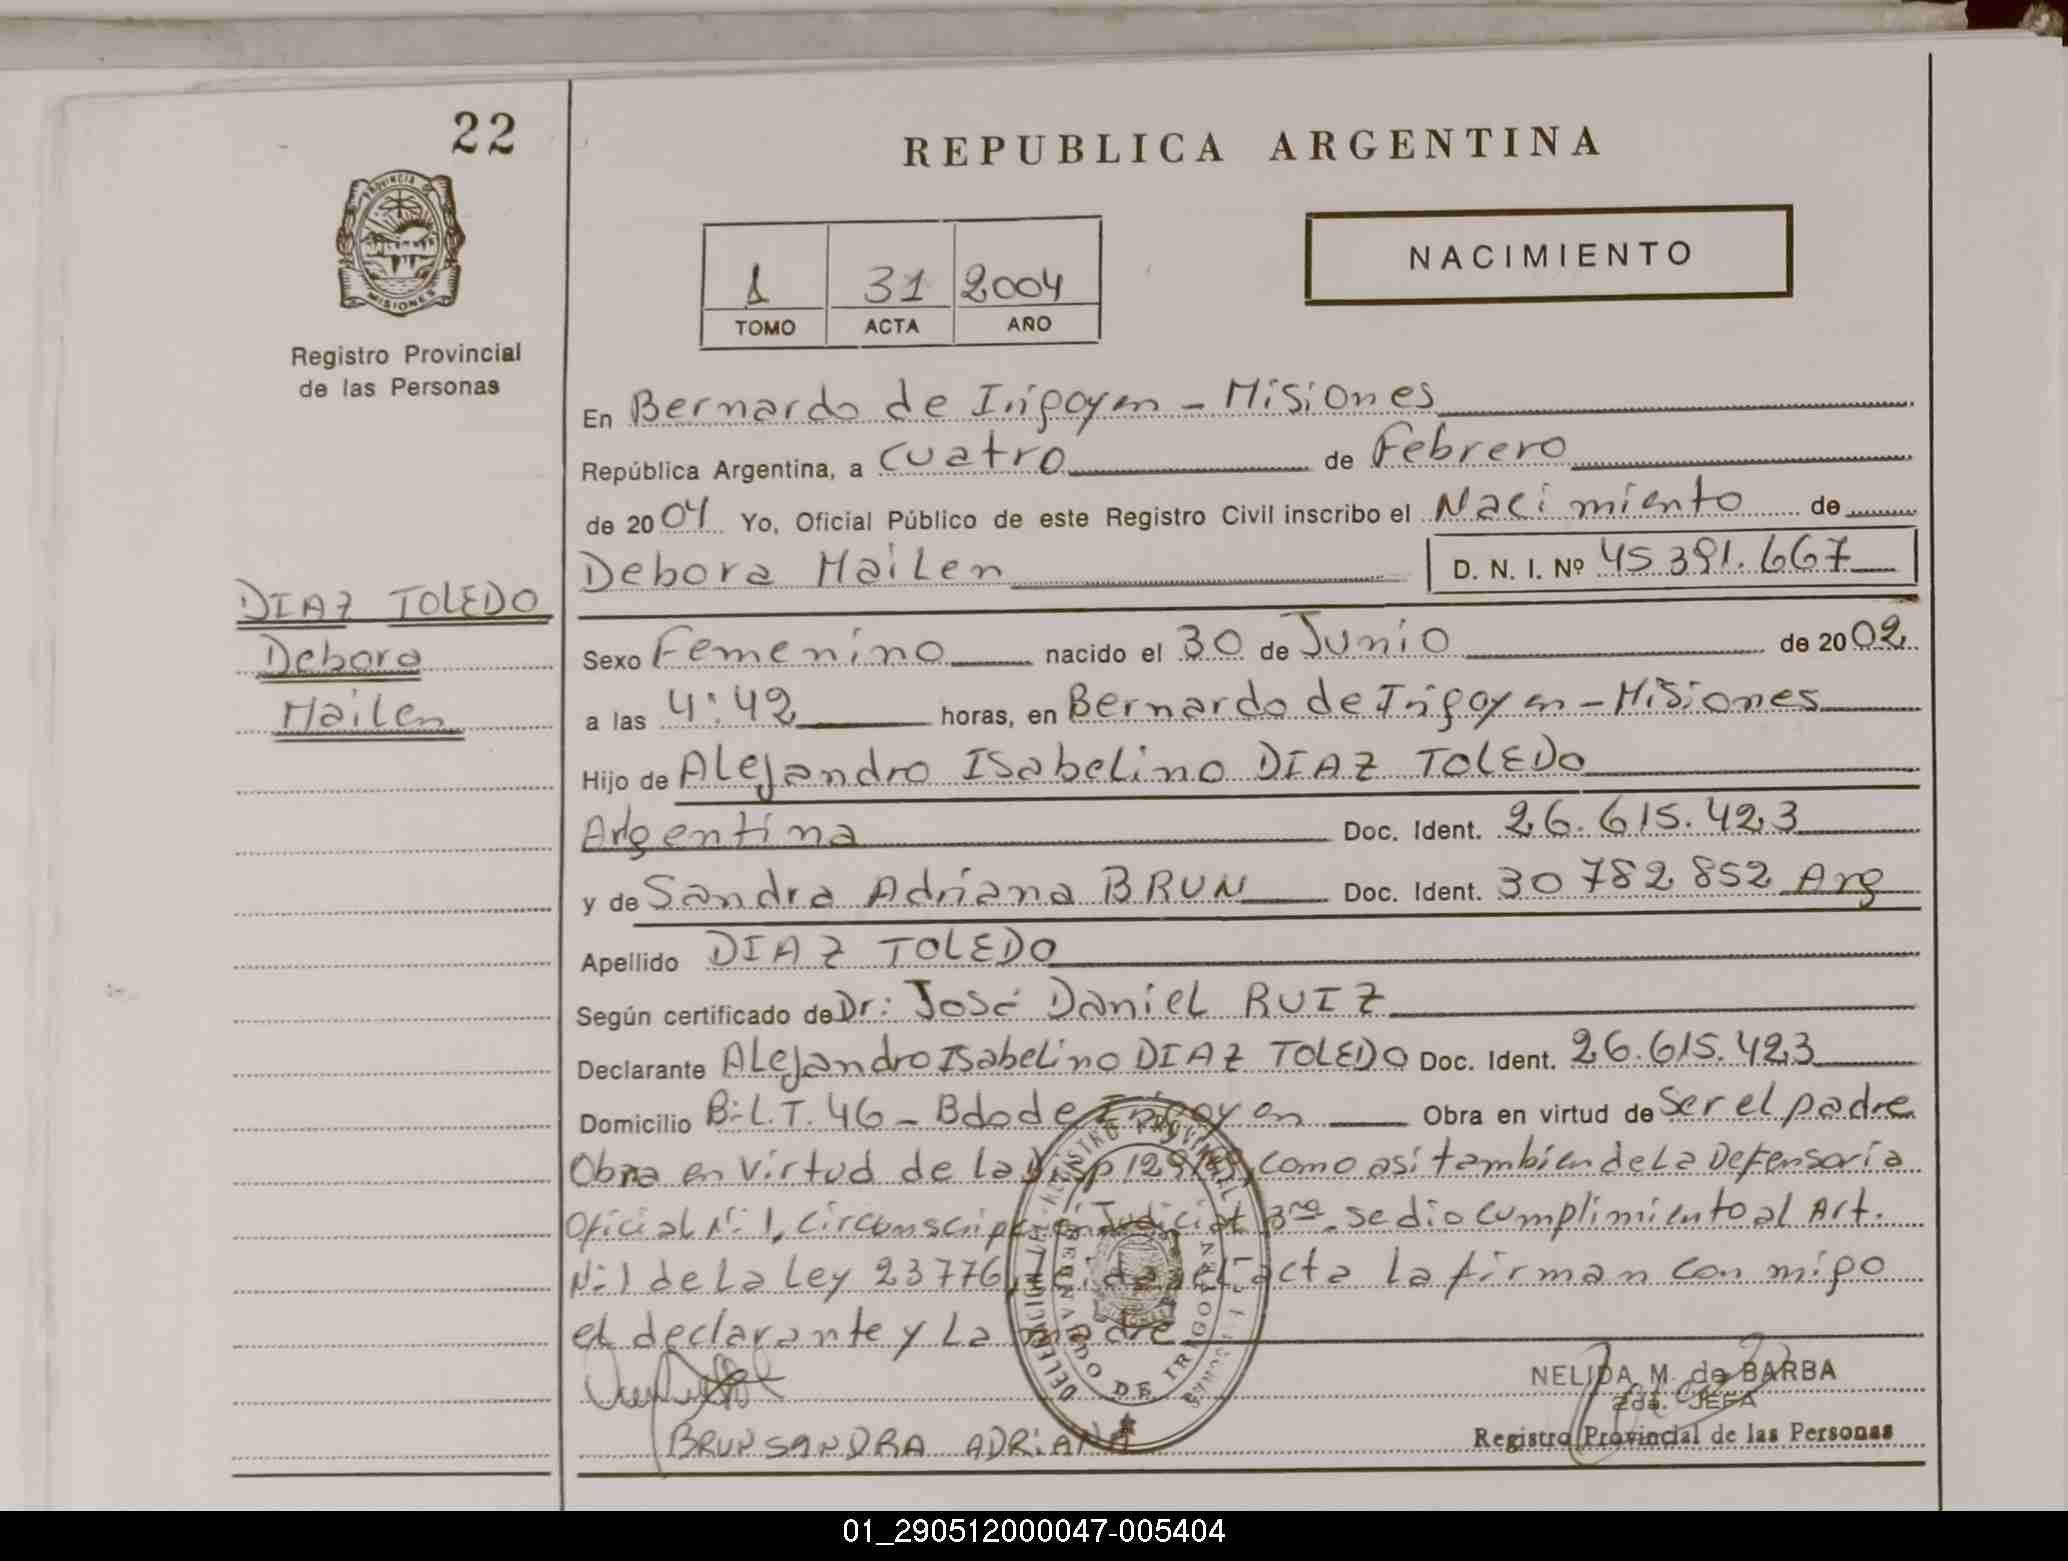 22
REPUBLICA ARGENTINA
PROVINCIA DE MISIONES
Registro Provincial
de las Personas
NACIMIENTO
1 31 2004
TOMO ACTA AÑO
En Bernardo de Irigoyen - Misiones
República Argentina, a cuatro de Febrero
de 2004 Yo, Oficial Público de este Registro Civil inscribo el Nacimiento de
Debora Mailen D. N. I. Nº 45.391.667
DIAZ TOLEDO
Debora
Mailen
Sexo Femenino nacido el 30 de Junio de 2002
a las 4:42 horas, en Bernardo de Irigoyen - Misiones
Hijo de Alejandro Isabelino DIAZ TOLEDO
Argentina Doc. Ident. 26.615.423
y de Sandra Adriana BRUN Doc. Ident. 30 782 852 Arg
Apellido DIAZ TOLEDO
Según certificado de Dr: José Daniel RUIZ
Declarante Alejandro Isabelino DIAZ TOLEDO Doc. Ident. 26.615.423
Domicilio B: L.T. 46 - Bdo de Irigoyen Obra en virtud de Ser el padre
Obra en virtud de la como asi tambien de La Defensoria
Oficial N: 1, Circunscripción Judicial 3ra. se dio cumplimiento al Art.
N: 1 de La Ley 23776, Leida el acta la firman con migo
el declarante y La madre
BRUN SANDRA ADRIANA
NELIDA M. de BARBA
2da. JEFA
Registro Provincial de las Personas
DELEGACION REGISTRO PROVINCIAL
BERNARDO DE IRIGOYEN
01_290512000047-005404